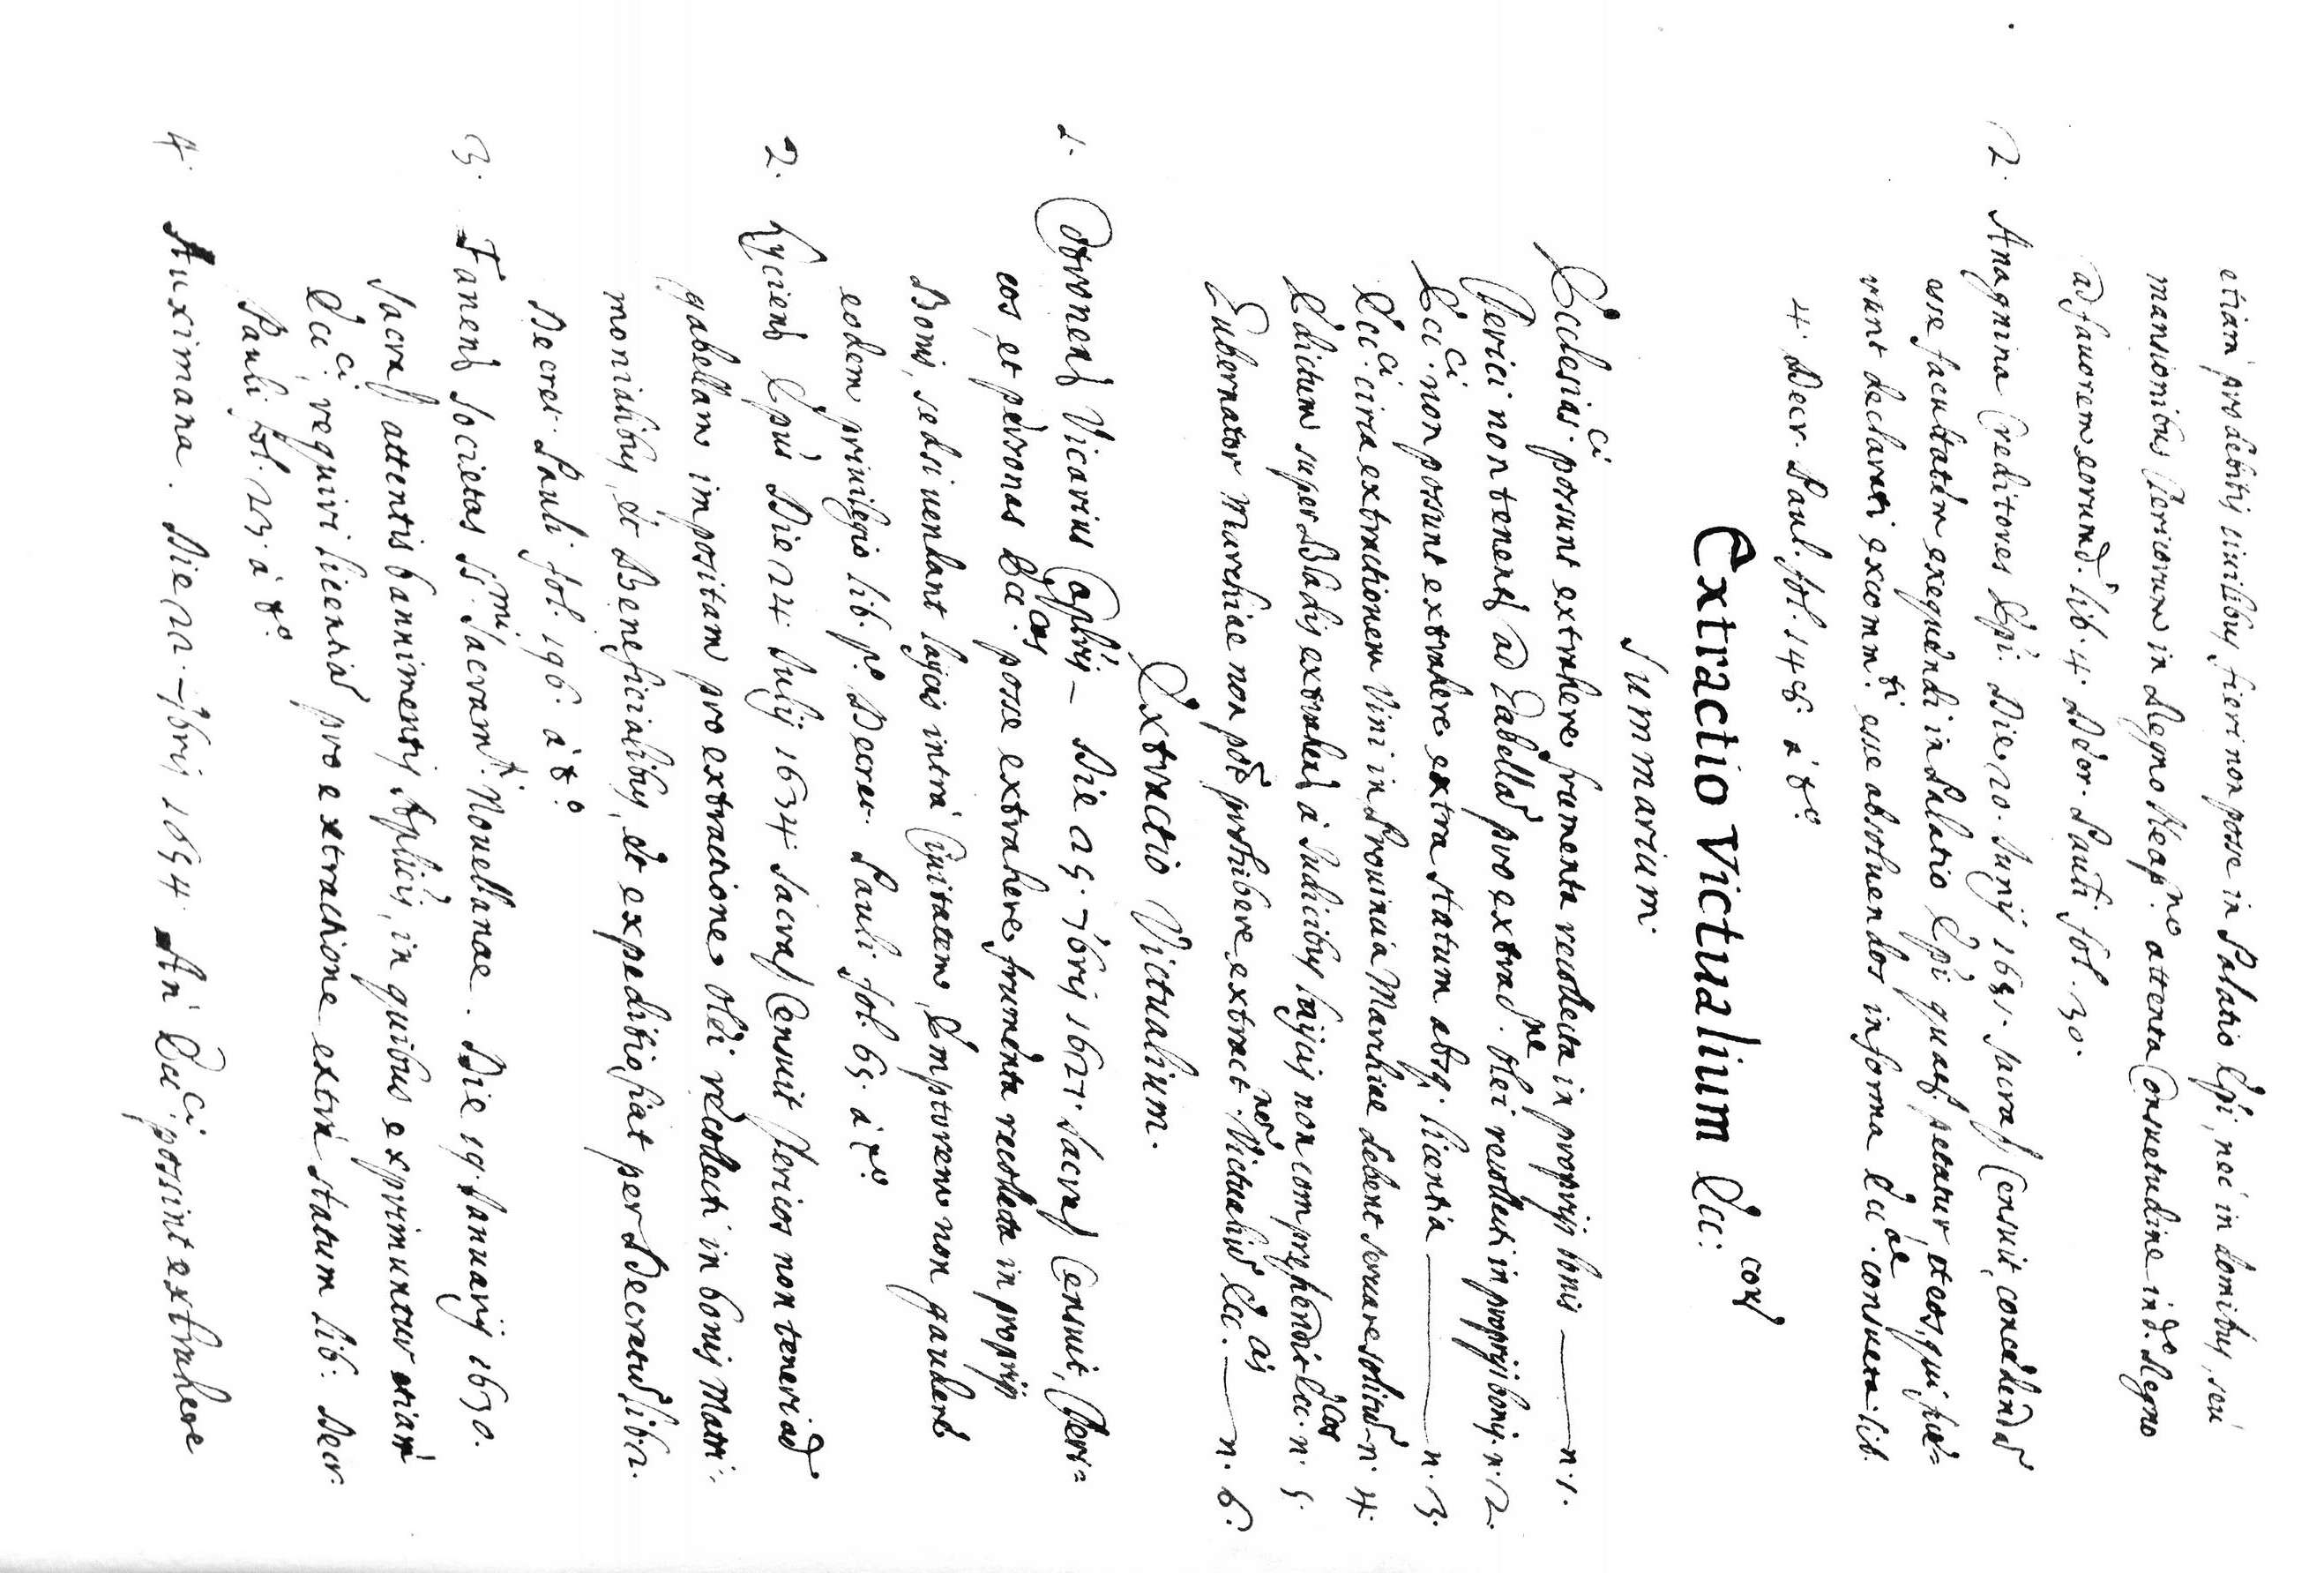 etiam pro debitis ciuilibus fieri non posse in Palatio Epi, nec in domibus, seu
mansionibus Clericorum in Regno Neap.no attenta Consuetudine in d.o Regno
ad fauorem eorumd. lib. 4. Decr. Pauli fol. 30.
2. Anagnina Creditores Epi. Die 20. Junij 1651. Sacra Censuit, concedend
esse facultatem exequendi in Palatio Epi quat. petatur, et eos, qui fue=
runt declarati excomm.ti esse absoluendos in forma Ecc.ae consueta. lib.
4. Decr. Paul. fol. 148 à t.o
Extractio Victualium Ecc:
Summarium.
Ecclesias.ci possunt extrahere frumenta recollecta in proprijs bonis — n. 1.
Clerici non tenent ad Gabellas pro extrac.ne olei recollecti in proprijs bonis. n. 2.
Ecc.ci non possunt extrahere extra statum absq. licentia — n. 3.
Ecc.ci circa extractionem Vini in Prouincia Marchiae debent seruare solitu n. 4.
Edictum super Bladis extrahend à Judicibus laijcis non comprehendit Ecc.cos n. 5.
Gubernator Marchiae non pot prohibere extract.nes Victualiu Ecc. — n. 6.
Extractio Victualium.
1. Vicarius Caplris — Die 25. 7bris 1627. Sacra Censuit, Cleri=
cos, et personas Ecc.cas posse extrahere frumenta recollecta in proprijs
Bonis, sed si uendant laijcis intra Ciuitatem, Emptorem non gaudere
eodem priuilegio lib. p.o Decret. Pauli fol. 65. à t.o
2. Epus Die 24 Julij 1634 Sacra Censuit Clericos non teneri ad
gabellam impositam pro extractione olei recollecti in bonis Matri=
monialibus, et Beneficialibus, et expeditio fiat per Decretu, lib. 2.
Decret. Pauli fol. 196. à t.o
3. Fanen Societas SS.mi Sacram.ti Nouellanae. Die 19. Januarij 1650.
Sacra attentis bannimentis Aplicis, in quibus exprimuntur etiam
Ecc.ci, requiri licentia pro extractione extra statum lib. Decr.
Pauli fol. 23. à t.o
4. Auximana. Die 22. 7bris 1654. An Ecc.ci possint extrahere